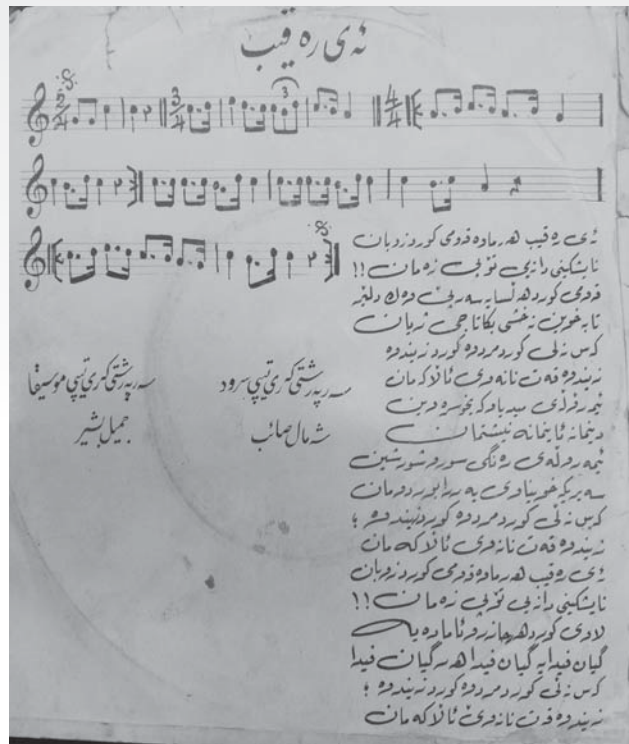 ئەی رەقیب
ئەی رەقیب هەر ماوە قەومی کورد زوبان
نایشکێنی دانەیی تۆپی زەمان !!
قەومی کورد هەڵسایە سەرپێ وەك دلێر
تا بە خوێن نەخشی بکا تاجی ژیان
کەس نەڵێ کورد مردوە کورد زیندوە
زیندوە قەت نانەوێ ئاڵاکەمان
ئێمە رۆڵەی میدیا و کەیخوسرەوین
دینمانە ئایمانە نیشتمان
ئێمە رۆڵەی رەنگی سوور و شۆرشین
سەیرێکە خویناوی یە رابوردومان
کەس نەڵێ کورد مردوە کورد زیندوە ؛
زیندوە قەت نانەوێ ئاڵاکەمان
ئەی رەقیب هەر ماوە قەومی کورد زوبان
نایشکێنی دانەیی تۆپی زەمان !!
لاوی کورد هەر حازر و ئامادەیە
گیان فیدایە گیان فیدا هەر گیان فیدا
کەس نەڵێ کورد مردوە کورد زیندوە ؛
زیندوە قەت نانەوێ ئاڵاکەمان
سەرپەرشتی کەری تیپی سرود
شەمال صائب
سەرپەرشتی کەری تیپی موسیقا
جمیل بشیر